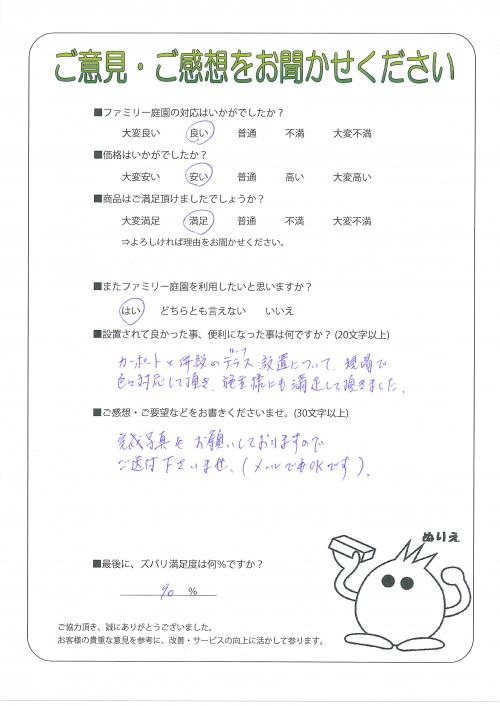 ご意見・ご感想をお聞かせください
■ファミリー庭園の対応はいかがでしたか？
大変良い 良い 普通 不満 大変不満
■価格はいかがでしたか？
大変安い 安い 普通 高い 大変高い
■商品はご満足頂けましたでしょうか？
大変満足 満足 普通 不満 大変不満
⇒よろしければ理由をお聞かせください。
■またファミリー庭園を利用したいと思いますか？
はい どちらとも言えない いいえ
■設置されて良かった事、便利になった事は何ですか？(20文字以上)
カーポートと併設のテラス設置について、現場で
色々対応して頂き、施主様にも満足して頂きました。
■ご感想・ご要望などをお書きくださいませ。(30文字以上)
完成写真をお願いしておりますので
ご送付下さいませ、(メールでもOKです)。
ぬりえ
■最後に、ズバリ満足度は何%ですか？
90 %
ご協力頂き、誠にありがとうございました。
お客様の貴重な意見を参考に、改善・サービスの向上に活かして参ります。